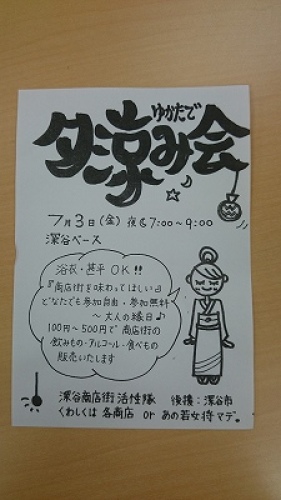 ゆかたで
夕涼み会
7月3日(金) 夜7:00〜9:00
深谷ベース
浴衣・甚平 OK!!
『商店街を味わってほしい』
どなたでも参加自由・参加無料
〜大人の縁日♪
100円〜500円で商店街の
飲みもの・アルコール・食べもの
販売いたします
深谷商店街活性隊 後援:深谷市
くわしくは 各商店 or あの若女将マデ。